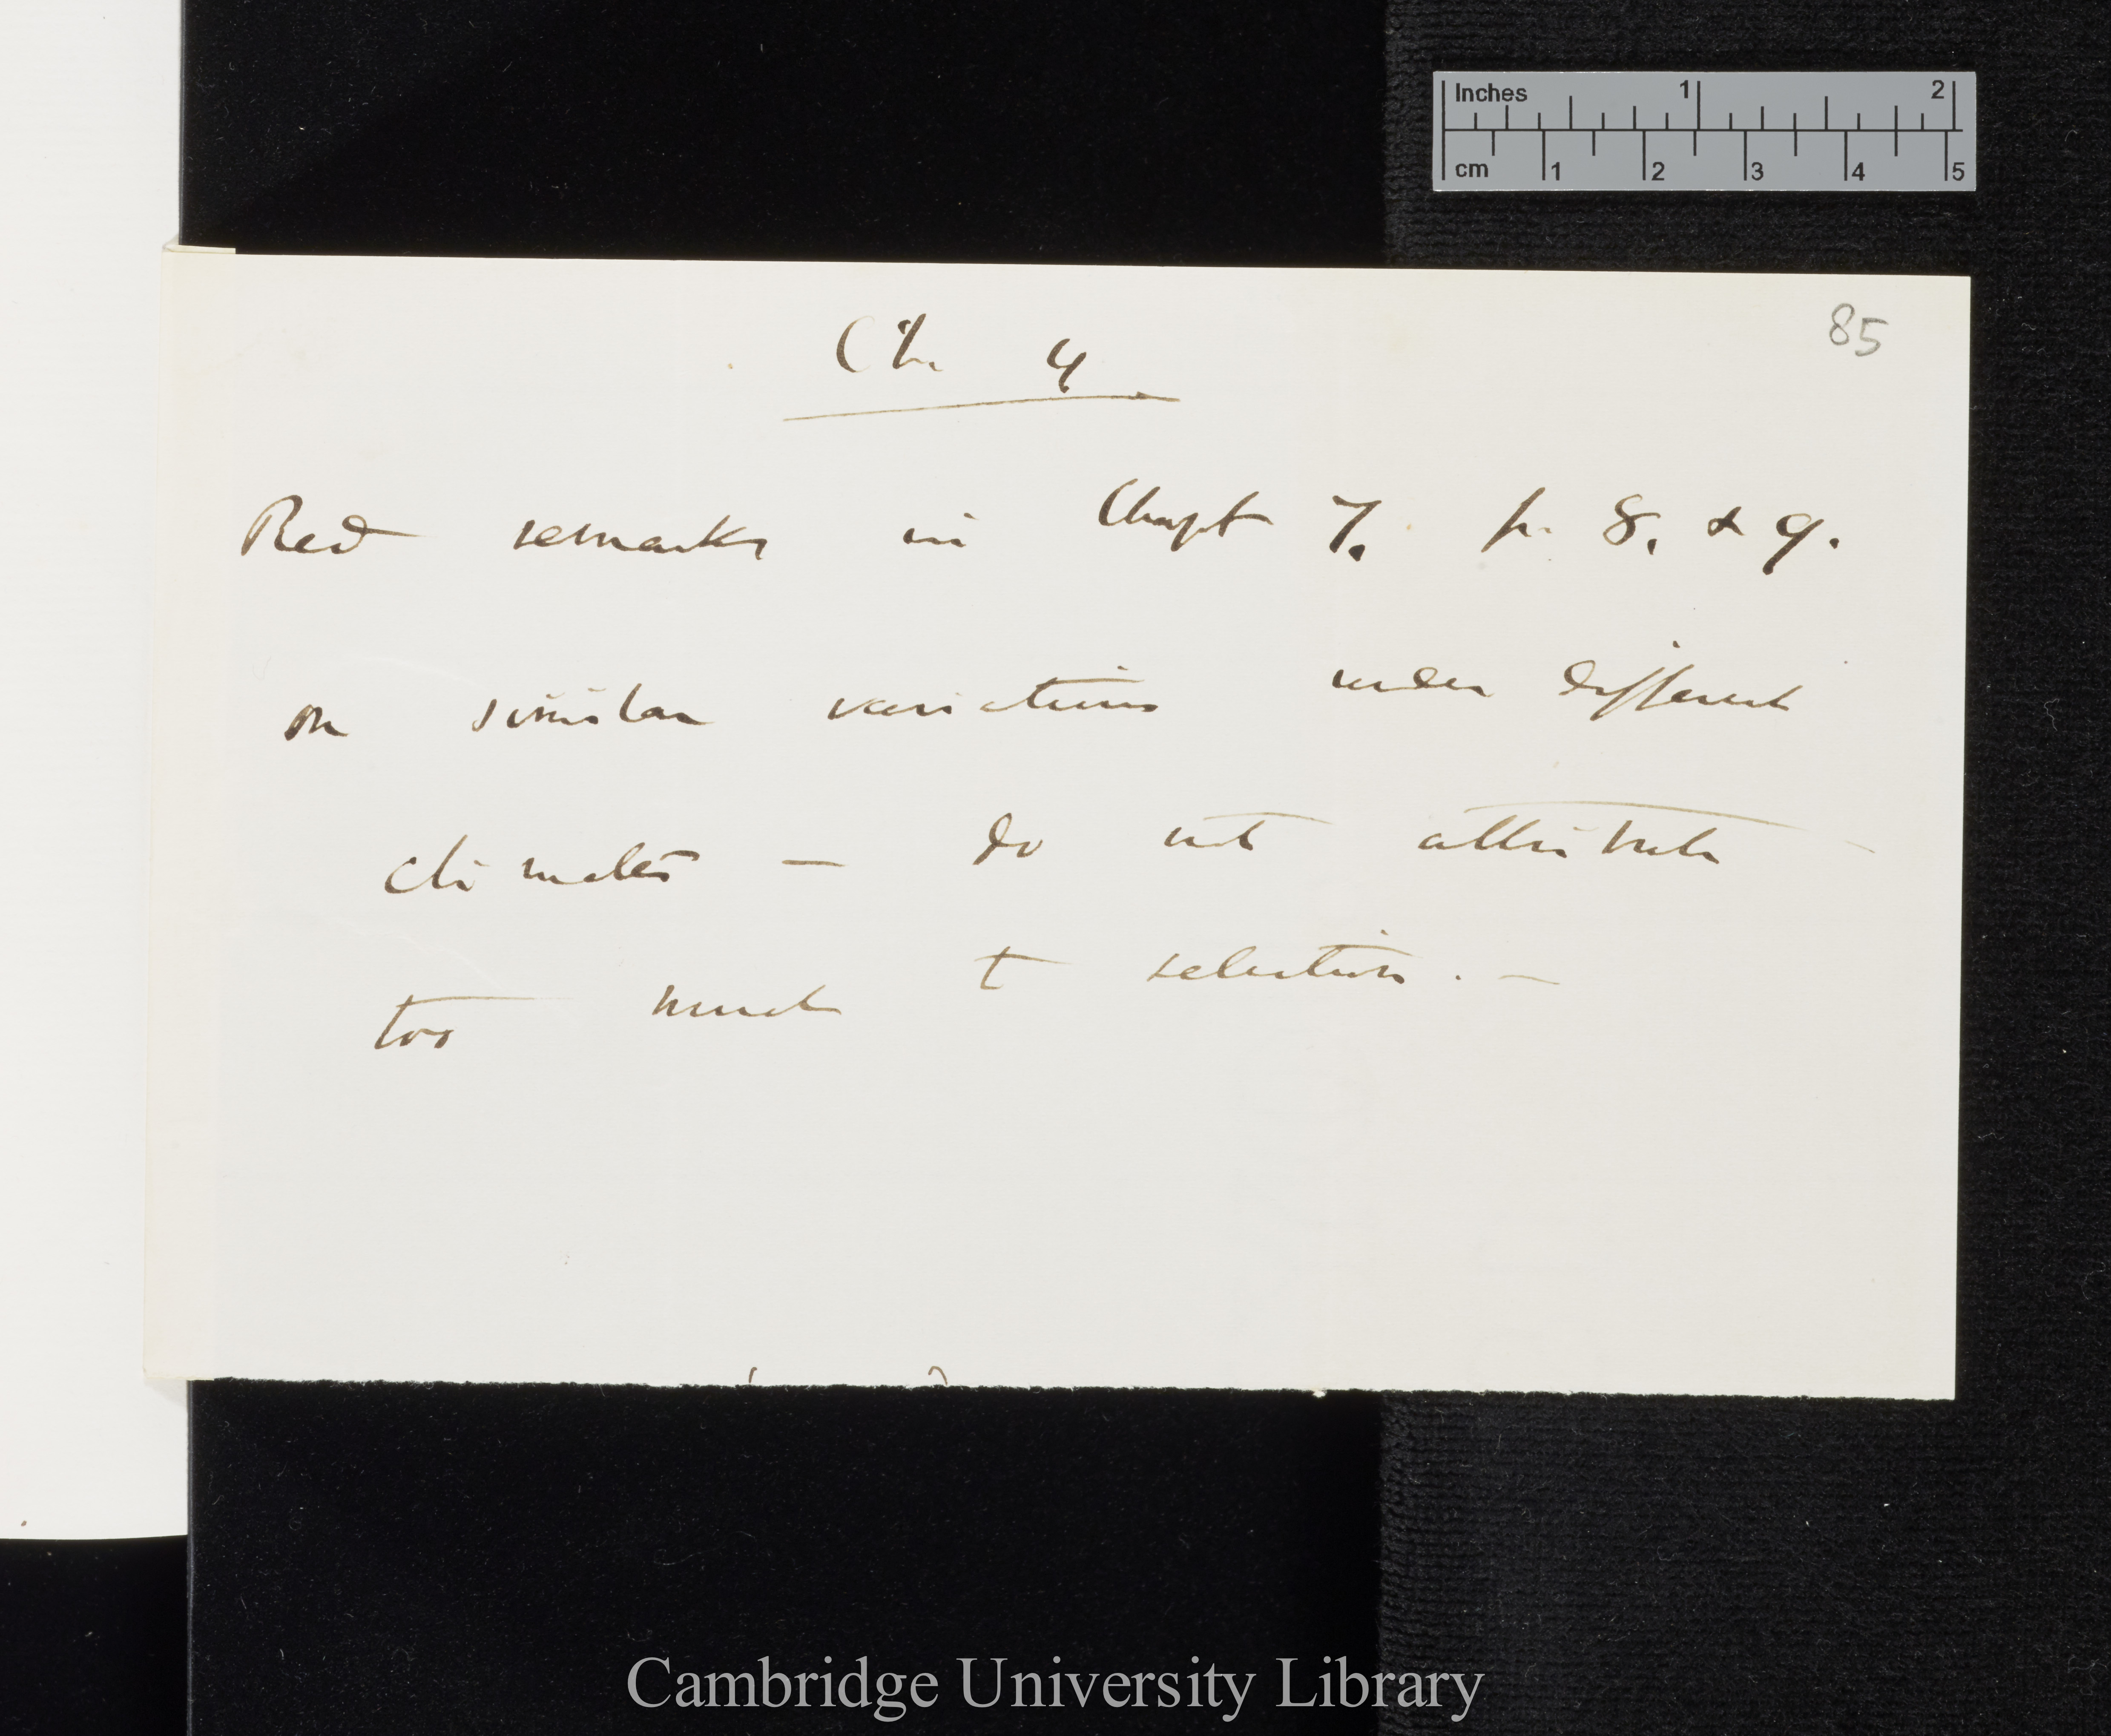 Inches 1 2
cm 1 2 3 4 5
85
Ch. 4
Read remarks in Chapt 7. p. 8. & 9.
on similar variations under different
climates — do not attribute
too much to selection. —
Cambridge University Library